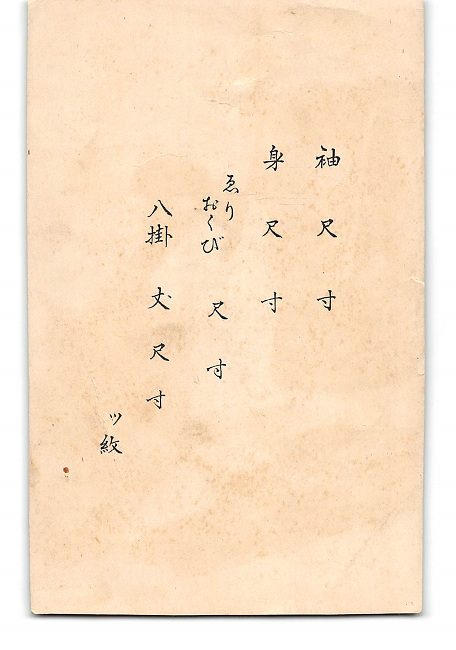 袖尺寸
身尺寸
ゑり
おくび 尺寸
八掛 丈尺寸
ツ紋